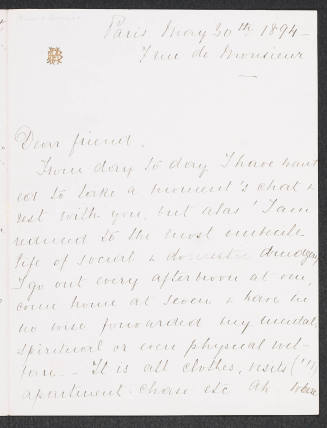 Paris May 30th 1894 –
7 rue de Monsieur
Dear friend.
From day to day I have want
ed to take a moment's chat &
rest with you, but alas! I am
reduced to the most imbecile
life of social & domestic drudgery
I go out every afternoon at one,
come home at seven & have in
no wise forwarded my mental,
spiritual or even physical wel-
fare. – It is all clothes, visits (!!!)
apartment-chase etc Ah